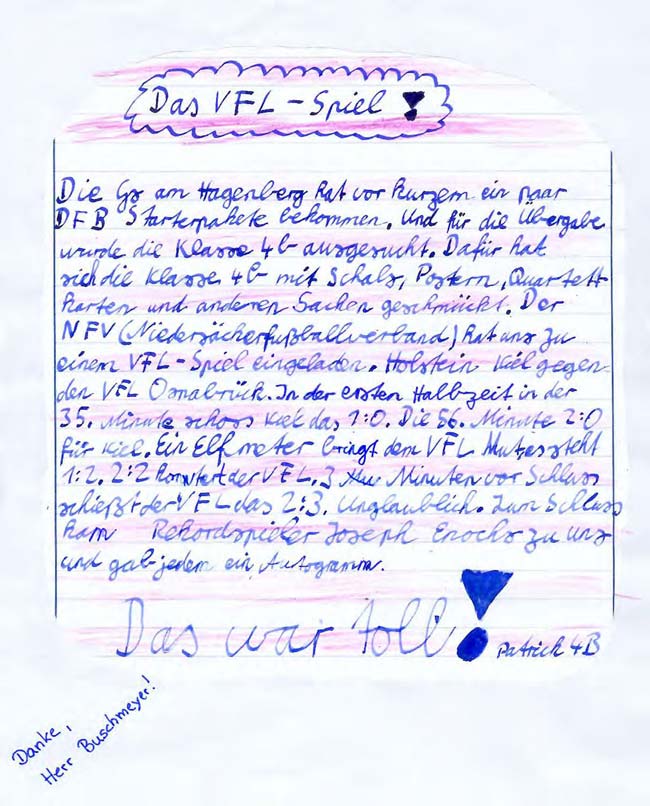 Das VFL - Spiel !
Die Gs am Hagenberg hat vor kurzem ein paar
DFB Starterpakete bekommen. Und für die Übergabe
wurde die Klasse 4b ausgesucht. Dafür hat
sich die Klasse 4b mit Schals, Postern, Quartett-
karten und anderen Sachen geschmückt. Der
NFV (Niedersächerfußballverband) hat uns zu
einem VFL-Spiel eingeladen. Holstein Kiel gegen
den VFL Osnabrück. In der ersten Halbzeit in der
35. Minute schoss Kiel das 1:0. Die 56. Minute 2:0
für Kiel. Ein Elfmeter bringt dem VFL Mut, es steht
1:2. 2:2 der VFL. 3 Minuten vor Schluss
schießt der VFL das 2:3. Unglaublich. Zum Schluss
kam Rekordspieler Joseph Enochs zu uns
und gab jedem ein Autogramm.
Das war toll!
Patrick 4B
Danke,
Herr Buschmeyer!